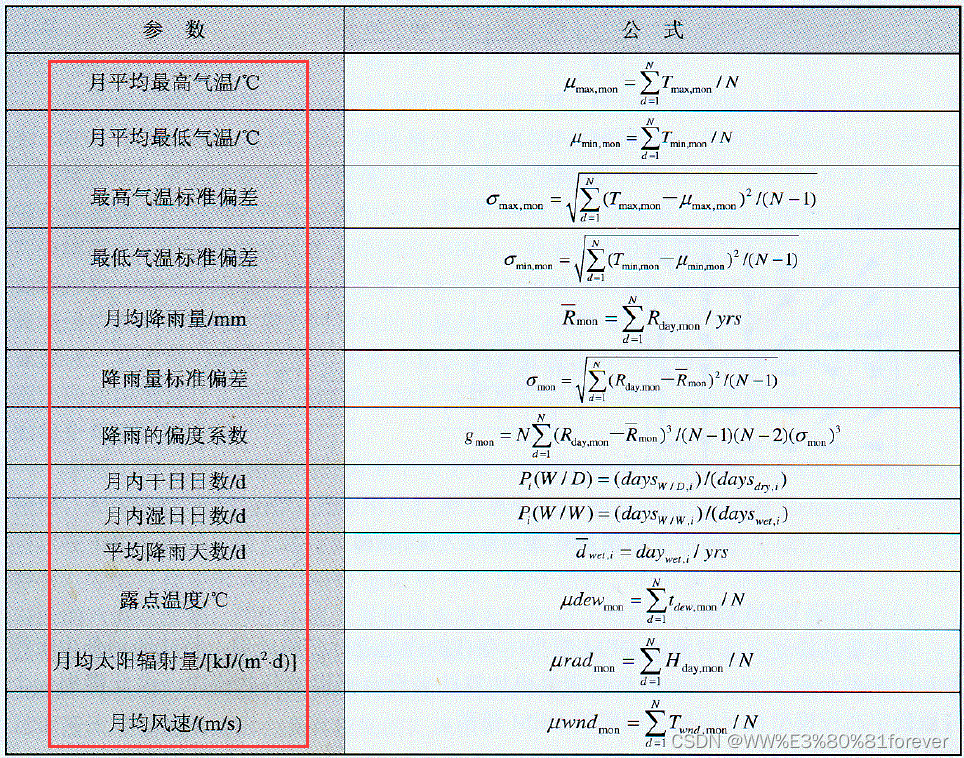 参 数 公 式
月平均最高气温/℃ μmax,mon = ∑(d=1→N) Tmax,mon / N
月平均最低气温/℃ μmin,mon = ∑(d=1→N) Tmin,mon / N
最高气温标准偏差 σmax,mon = √(∑(d=1→N) (Tmax,mon − μmax,mon)² /(N −1))
最低气温标准偏差 σmin,mon = √(∑(d=1→N) (Tmin,mon − μmin,mon)² /(N −1))
月均降雨量/mm R̄mon = ∑(d=1→N) Rday,mon / yrs
降雨量标准偏差 σmon = √(∑(d=1→N) (Rday,mon − R̄mon)² /(N −1))
降雨的偏度系数 gmon = N∑(d=1→N) (Rday,mon − R̄mon)³ /(N −1)(N −2)(σmon)³
月内干日日数/d Pi(W / D) = (daysW/D,i)/(daysdry,i)
月内湿日日数/d Pi(W / W) = (daysW/W,i)/(dayswet,i)
平均降雨天数/d d̄wet,i = daywet,i / yrs
露点温度/℃ μdewmon = ∑(d=1→N) tdew,mon / N
月均太阳辐射量/[kJ/(m²·d)] μradmon = ∑(d=1→N) Hday,mon / N
月均风速/(m/s) μwndmon = ∑(d=1→N) Twnd,mon / N
CSDN @WW%E3%80%81forever